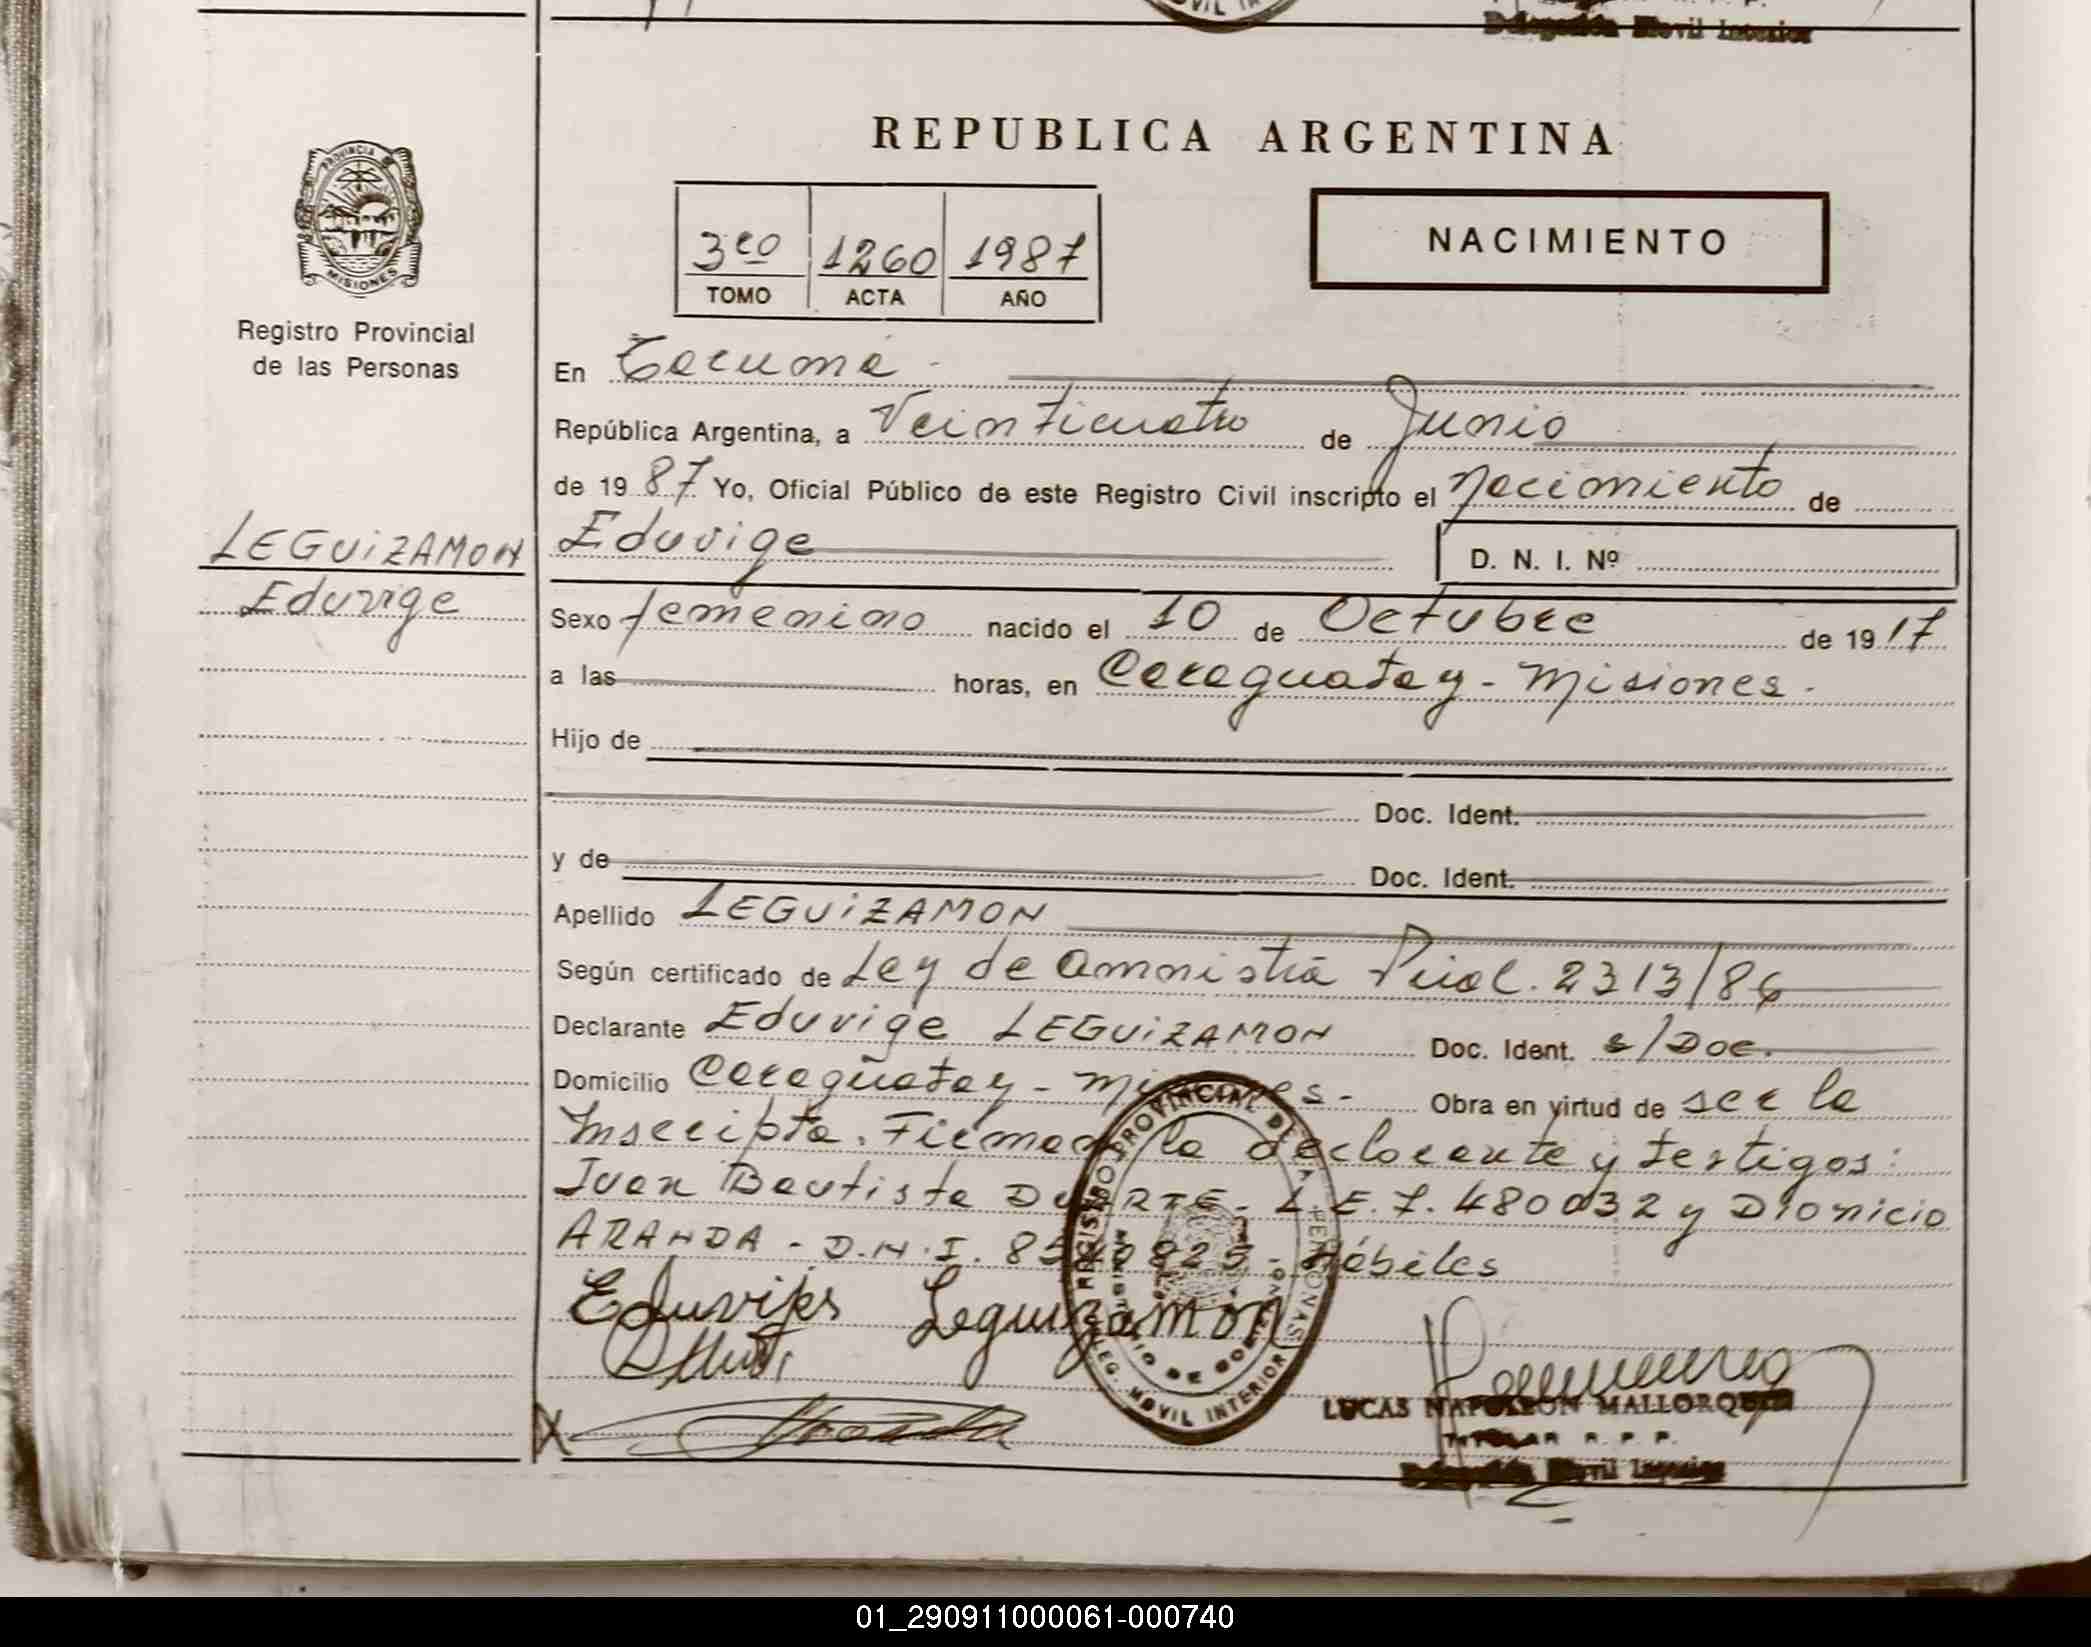 Delegación Movil Interior
REPUBLICA ARGENTINA
PROVINCIA DE
MISIONES
Registro Provincial
de las Personas
3ro 1260 1987
TOMO ACTA AÑO
NACIMIENTO
En Tacuma -
República Argentina, a Veinticuatro de Junio
de 19 87 Yo, Oficial Público de este Registro Civil inscripto el Nacimiento de
LEGUiZAMON
Eduvige
Eduvige D. N. I. Nº
Sexo femenino nacido el 10 de Octubre de 19 17
a las horas, en Caraguatay - Misiones.
Hijo de
Doc. Ident.
y de Doc. Ident.
Apellido LEGUiZAMON
Según certificado de Ley de Amnistia Pcial. 2313/86
Declarante Eduvige LEGUiZAMON Doc. Ident. s/Doc.
Domicilio Caraguatay - Misiones. Obra en virtud de ser la
Inscripta. Firman la declarante y testigos:
Juan Bautista DUARTE - L.E. 7.480032 y Dionicio
ARANDA - D.N.I. - Hábiles
Eduvijes Leguizamon
REGISTRO PROVINCIAL DE LAS PERSONAS
MINISTERIO DE GOBIERNO
DELEG. MOVIL INTERIOR
LUCAS NAPOLEON MALLORQUIN
TITULAR R. P. P.
Delegación Movil Interior
01_290911000061-000740